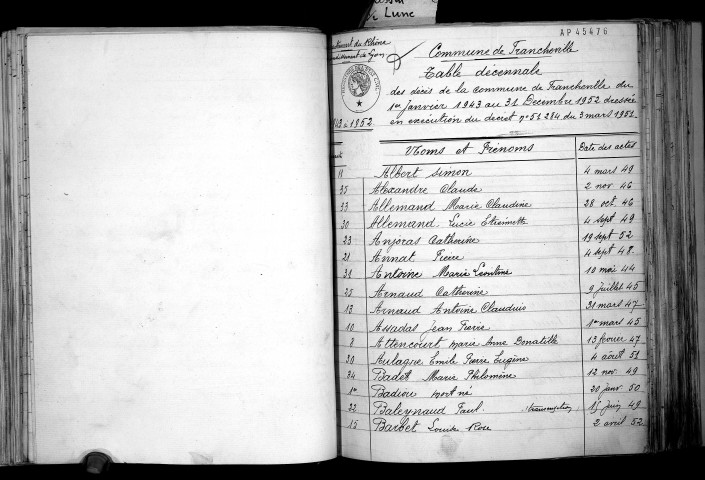 de Lune
AP 45476
Commune de Francheville
Table décennale
des décès de la commune de Francheville du
1er Janvier 1943 au 31 Décembre 1952 dressée
en exécution du décret n° 51 284 du 3 mars 1951.
à 1952
Noms et Prénoms Date des actes
11 Albert Simon 4 mars 49
35 Alexandre Claude 2 nov 46
33 Allemand Marie Claudine 28 oct. 46
30 Allemand Lucie Etiennette 4 sept 49
23 Anjoras Catherine 19 sept 52
21 Annat Pierre 4 sept 48
31 Antoine Marie Léontine 10 mai 44
25 Arnaud Catherine 9 juillet 45
13 Arnaud Antoine Claudius 31 mars 47
10 Assadas Jean Pierre 1er mars 45
8 Attencourt Marie Anne Donatille 13 février 47
30 Aulagne Emile Pierre Eugène 4 août 51
34 Badet Marie Philomène 12 nov 49
1er Badiou mort né 20 janv 50
22 Baleynaud Paul. (transcription) 15 juin 49
15 Barbet Louise Rose 2 avril 52